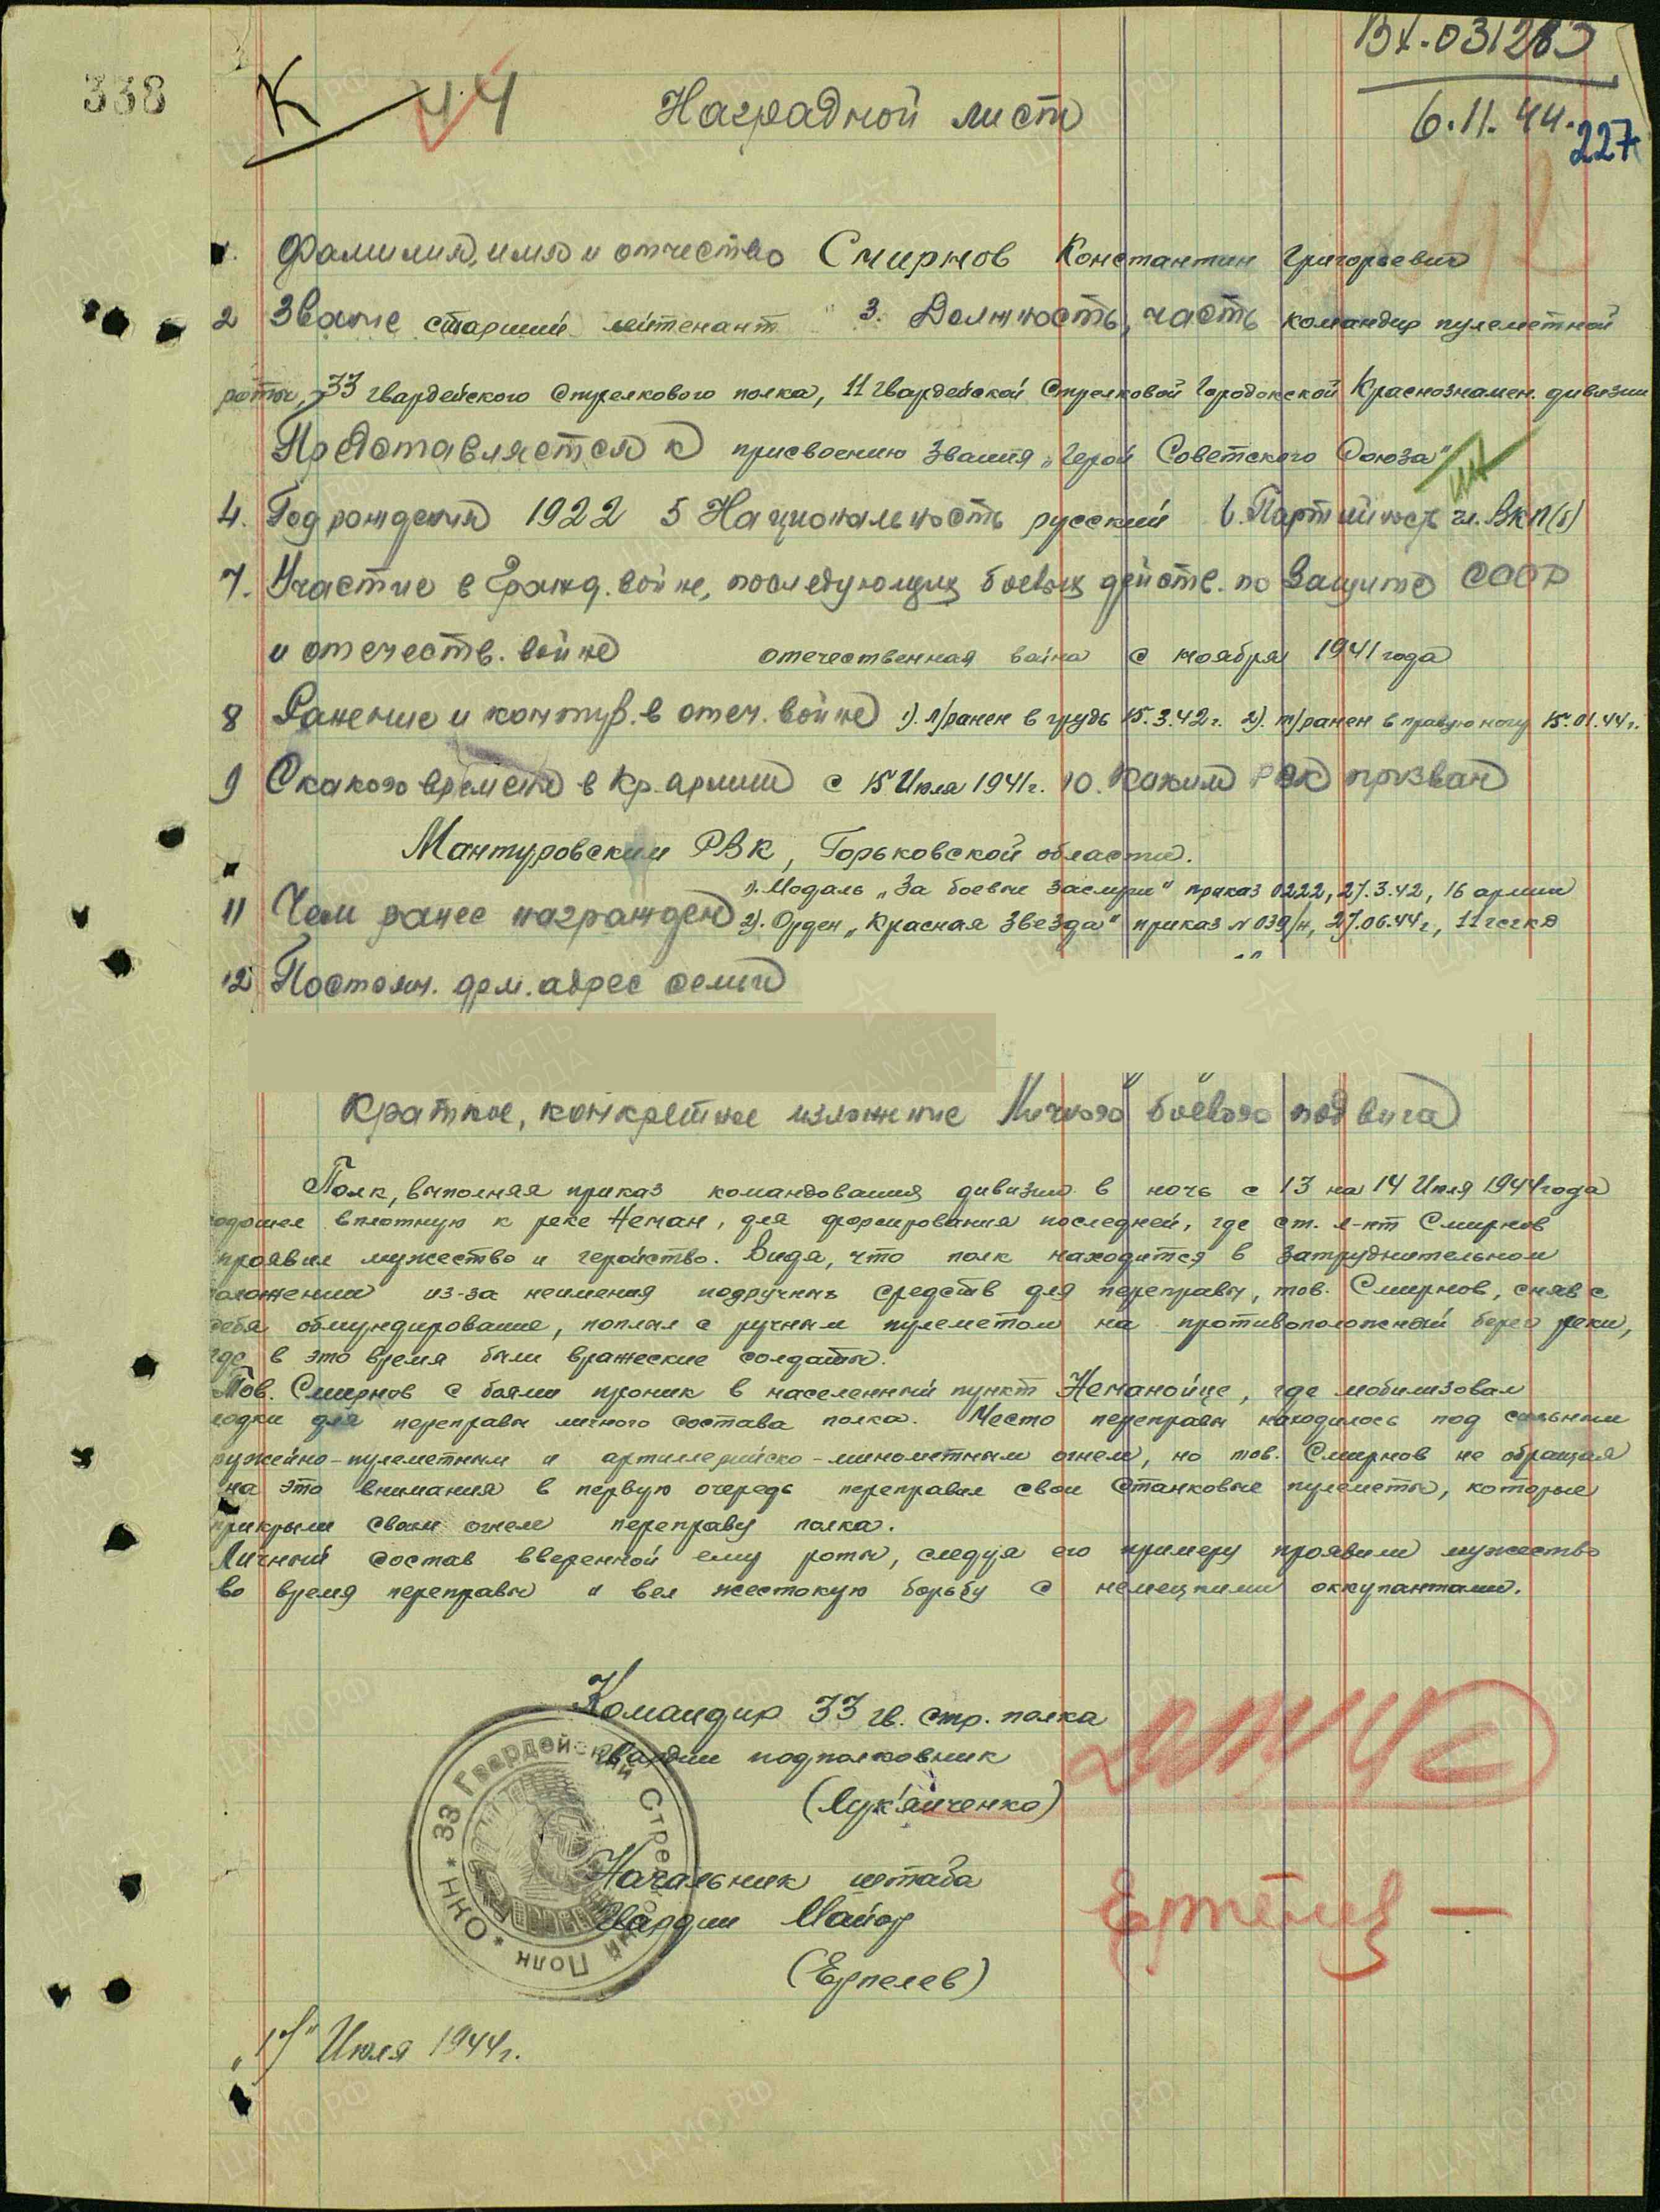 338
К
44
Вх. 031283
6.11.44.
227
Наградной лист
1. Фамилия, имя и отчество Смирнов Константин Григорьевич
2 Звание старший лейтенант 3. Должность, часть командир пулеметной
роты, 33 гвардейского стрелкового полка, 11 гвардейской стрелковой Городокской Краснознамен. дивизии
Представляется к присвоению звания „Герой Советского Союза"
4. Год рождения 1922 5 Национальность русский 6. Партийность чл. ВКП(б)
7. Участие в Гражд. войне, последующих боевых действ. по защите СССР
и отечеств. войне отечественная война с ноября 1941 года
8 Ранение и контуз. в отеч. войне 1). л/ранен в грудь 15.3.42г. 2). т/ранен в правую ногу 15.01.44г.
9 С какого времени в Кр. армии с 15 Июля 1941г. 10. Каким РВК призван
Мантуровским РВК, Горьковской области.
11 Чем ранее награжден 1). Медаль „За боевые заслуги" приказ 0222, 27.3.42, 16 армии
2). Орден „Красная Звезда" приказ N 039/н, 27.06.44г, 11 гсгкд
12 Постоян. дом. адрес семьи
Краткое, конкретное изложение личного боевого подвига
Полк, выполняя приказ командования дивизии в ночь с 13 на 14 Июля 1944 года
одошел вплотную к реке Неман, для форсирования последней, где ст. л-нт Смирнов
проявил мужество и геройство. Видя, что полк находится в затруднительном
оложении из-за неимения подручных средств для переправы, тов. Смирнов, сняв с
себя обмундирование, поплыл с ручным пулеметом на противоположный берег реки,
где в это время были вражеские солдаты.
Тов. Смирнов с боями проник в населенный пункт Неманойце, где мобилизовал
лодки для переправы личного состава полка. Место переправы находилось под сильным
ружейно-пулеметным и артиллерийско-минометным огнем, но тов. Смирнов не обращая
на это внимания в первую очередь переправил свои станковые пулеметы, которые
прикрыли своим огнем переправу полка.
Личный состав вверенной ему роты, следуя его примеру проявили мужество
во время переправы и вел жестокую борьбу с немецкими оккупантами.
Командир 33 гв. стр. полка
гвардии подполковник
(Лукъянченко)
Начальник штаба
гвардии Майор
(Ерпелев)
33 Гвардейский Стрелковый Полк * ОНН *
„17" Июля 1944г.